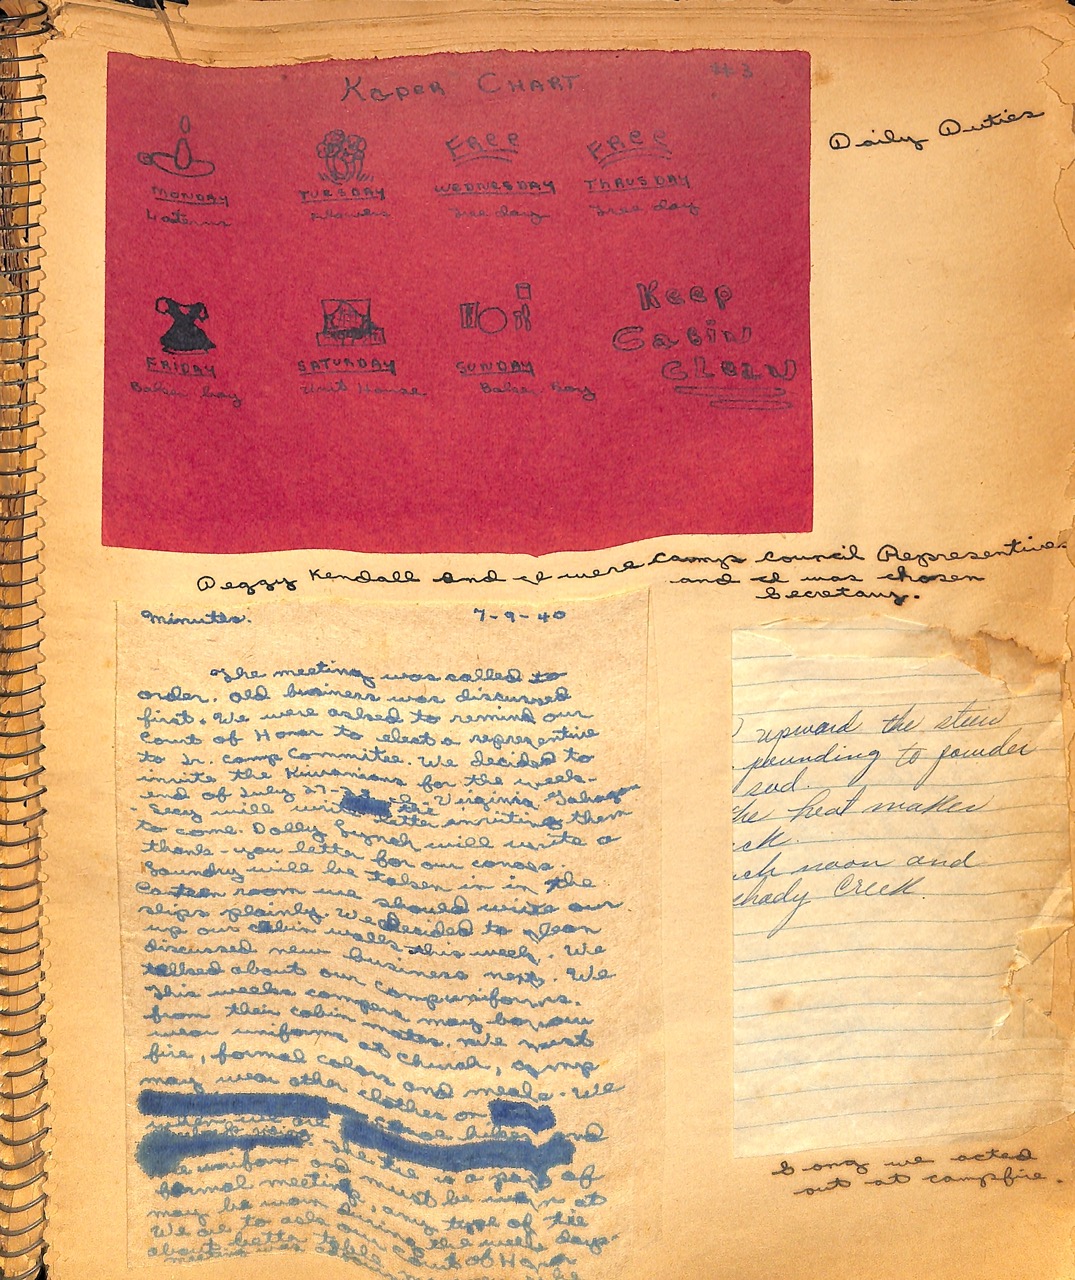 Kaper Chart #3
Daily Duties
FREE FREE
MONDAY TUESDAY WEDNESDAY THRUSDAY
Flowers Free day Free day
Keep
Cabin
Clean
FRIDAY SATURDAY SUNDAY
Baker bay Unit House Baker Bay
Peggy Kendall and I were camp council Representives
and I was chosen
Secretary.
Minutes. 7-9-40
The meeting was called to
order. Old business was discussed
first. We were asked to remind our
Court of Honor to elect a representive
to Jr. Camp Committee. We decided to
invite the Kiwanians for the week-
end of July 27- Virginia
Secy will the letter inviting them
to come. Dolly Lynch will write a
thank-you letter for our canoes.
Laundry will be taken in in the
Canteen room we should write our
slips plainly. We decided to clean
up our cabin walls this week. We
discussed new business next. We
talked about our camp uniforms.
This weeks campers may borrow
from their cabin mates. We must
wear uniforms at church, camp
fire, formal colors and meals. We
may wear other clothes on
hikes and
The tie is a part of
the uniform and must be worn at
formal meeting, any type of tie
may be worn during the week days.
We are to ask our Court of Honor
about better table
meeting was
upward the stew
pounding to powder
sod.
the heat makes
ck.
ch noon and
shady Creek.
Song we acted
out at campfire.